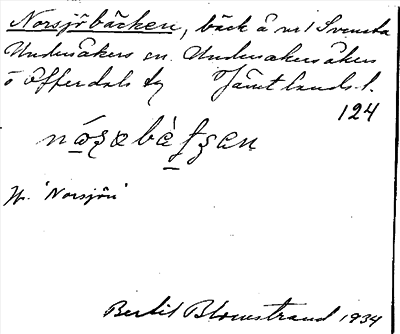 Norsjöbäcken, bäck å nr 1 Svenska
Undersåkers sn. Undersåkers
i Offerdals tg Jämtlands l.
124
Jfr. 'Norsjön'
Bertil Blomstrand 1934